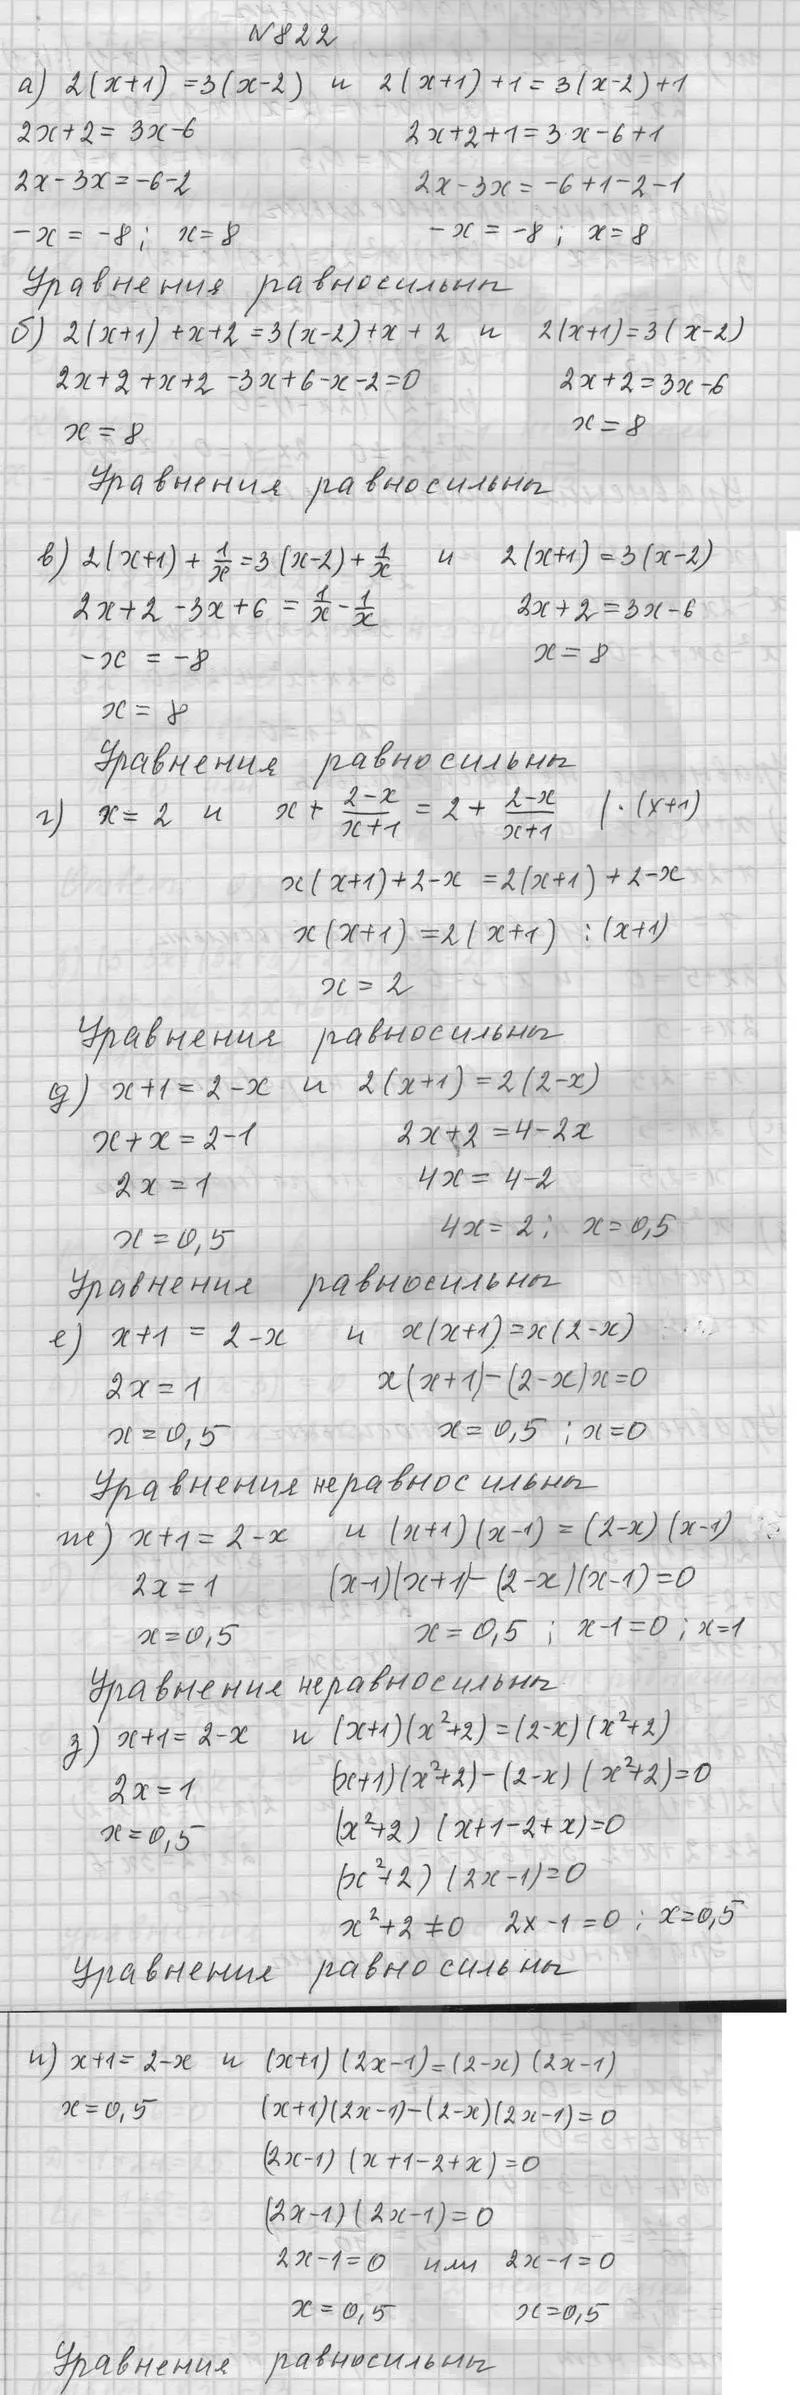 N822
а) 2(x+1) = 3(x-2) и 2(x+1)+1 = 3(x-2)+1
2x+2 = 3x-6 2x+2+1 = 3x-6+1
2x-3x = -6-2 2x-3x = -6+1-2-1
-x = -8; x = 8 -x = -8; x = 8
Уравнения равносильны
б) 2(x+1)+x+2 = 3(x-2)+x+2 и 2(x+1) = 3(x-2)
2x+2+x+2-3x+6-x-2 = 0 2x+2 = 3x-6
x = 8 x = 8
Уравнения равносильны
в) 2(x+1) + 1/x = 3(x-2) + 1/x и 2(x+1) = 3(x-2)
2x+2-3x+6 = 1/x - 1/x 2x+2 = 3x-6
-x = -8 x = 8
x = 8
Уравнения равносильны
г) x = 2 и x + (2-x)/(x+1) = 2 + (2-x)/(x+1) | · (x+1)
x(x+1)+2-x = 2(x+1)+2-x
x(x+1) = 2(x+1) :(x+1)
x = 2
Уравнения равносильны
д) x+1 = 2-x и 2(x+1) = 2(2-x)
x+x = 2-1 2x+2 = 4-2x
2x = 1 4x = 4-2
x = 0,5 4x = 2; x = 0,5
Уравнения равносильны
е) x+1 = 2-x и x(x+1) = x(2-x)
2x = 1 x(x+1)-(2-x)x = 0
x = 0,5 x = 0,5; x = 0
Уравнения неравносильны
ж) x+1 = 2-x и (x+1)(x-1) = (2-x)(x-1)
2x = 1 (x-1)(x+1)-(2-x)(x-1) = 0
x = 0,5 x = 0,5; x-1 = 0; x = 1
Уравнения неравносильны
з) x+1 = 2-x и (x+1)(x²+2) = (2-x)(x²+2)
2x = 1 (x+1)(x²+2)-(2-x)(x²+2) = 0
x = 0,5 (x²+2)(x+1-2+x) = 0
(x²+2)(2x-1) = 0
x²+2 ≠ 0 2x-1 = 0; x = 0,5
Уравнения равносильны
и) x+1 = 2-x и (x+1)(2x-1) = (2-x)(2x-1)
x = 0,5 (x+1)(2x-1)-(2-x)(2x-1) = 0
(2x-1)(x+1-2+x) = 0
(2x-1)(2x-1) = 0
2x-1 = 0 или 2x-1 = 0
x = 0,5 x = 0,5
Уравнения равносильны